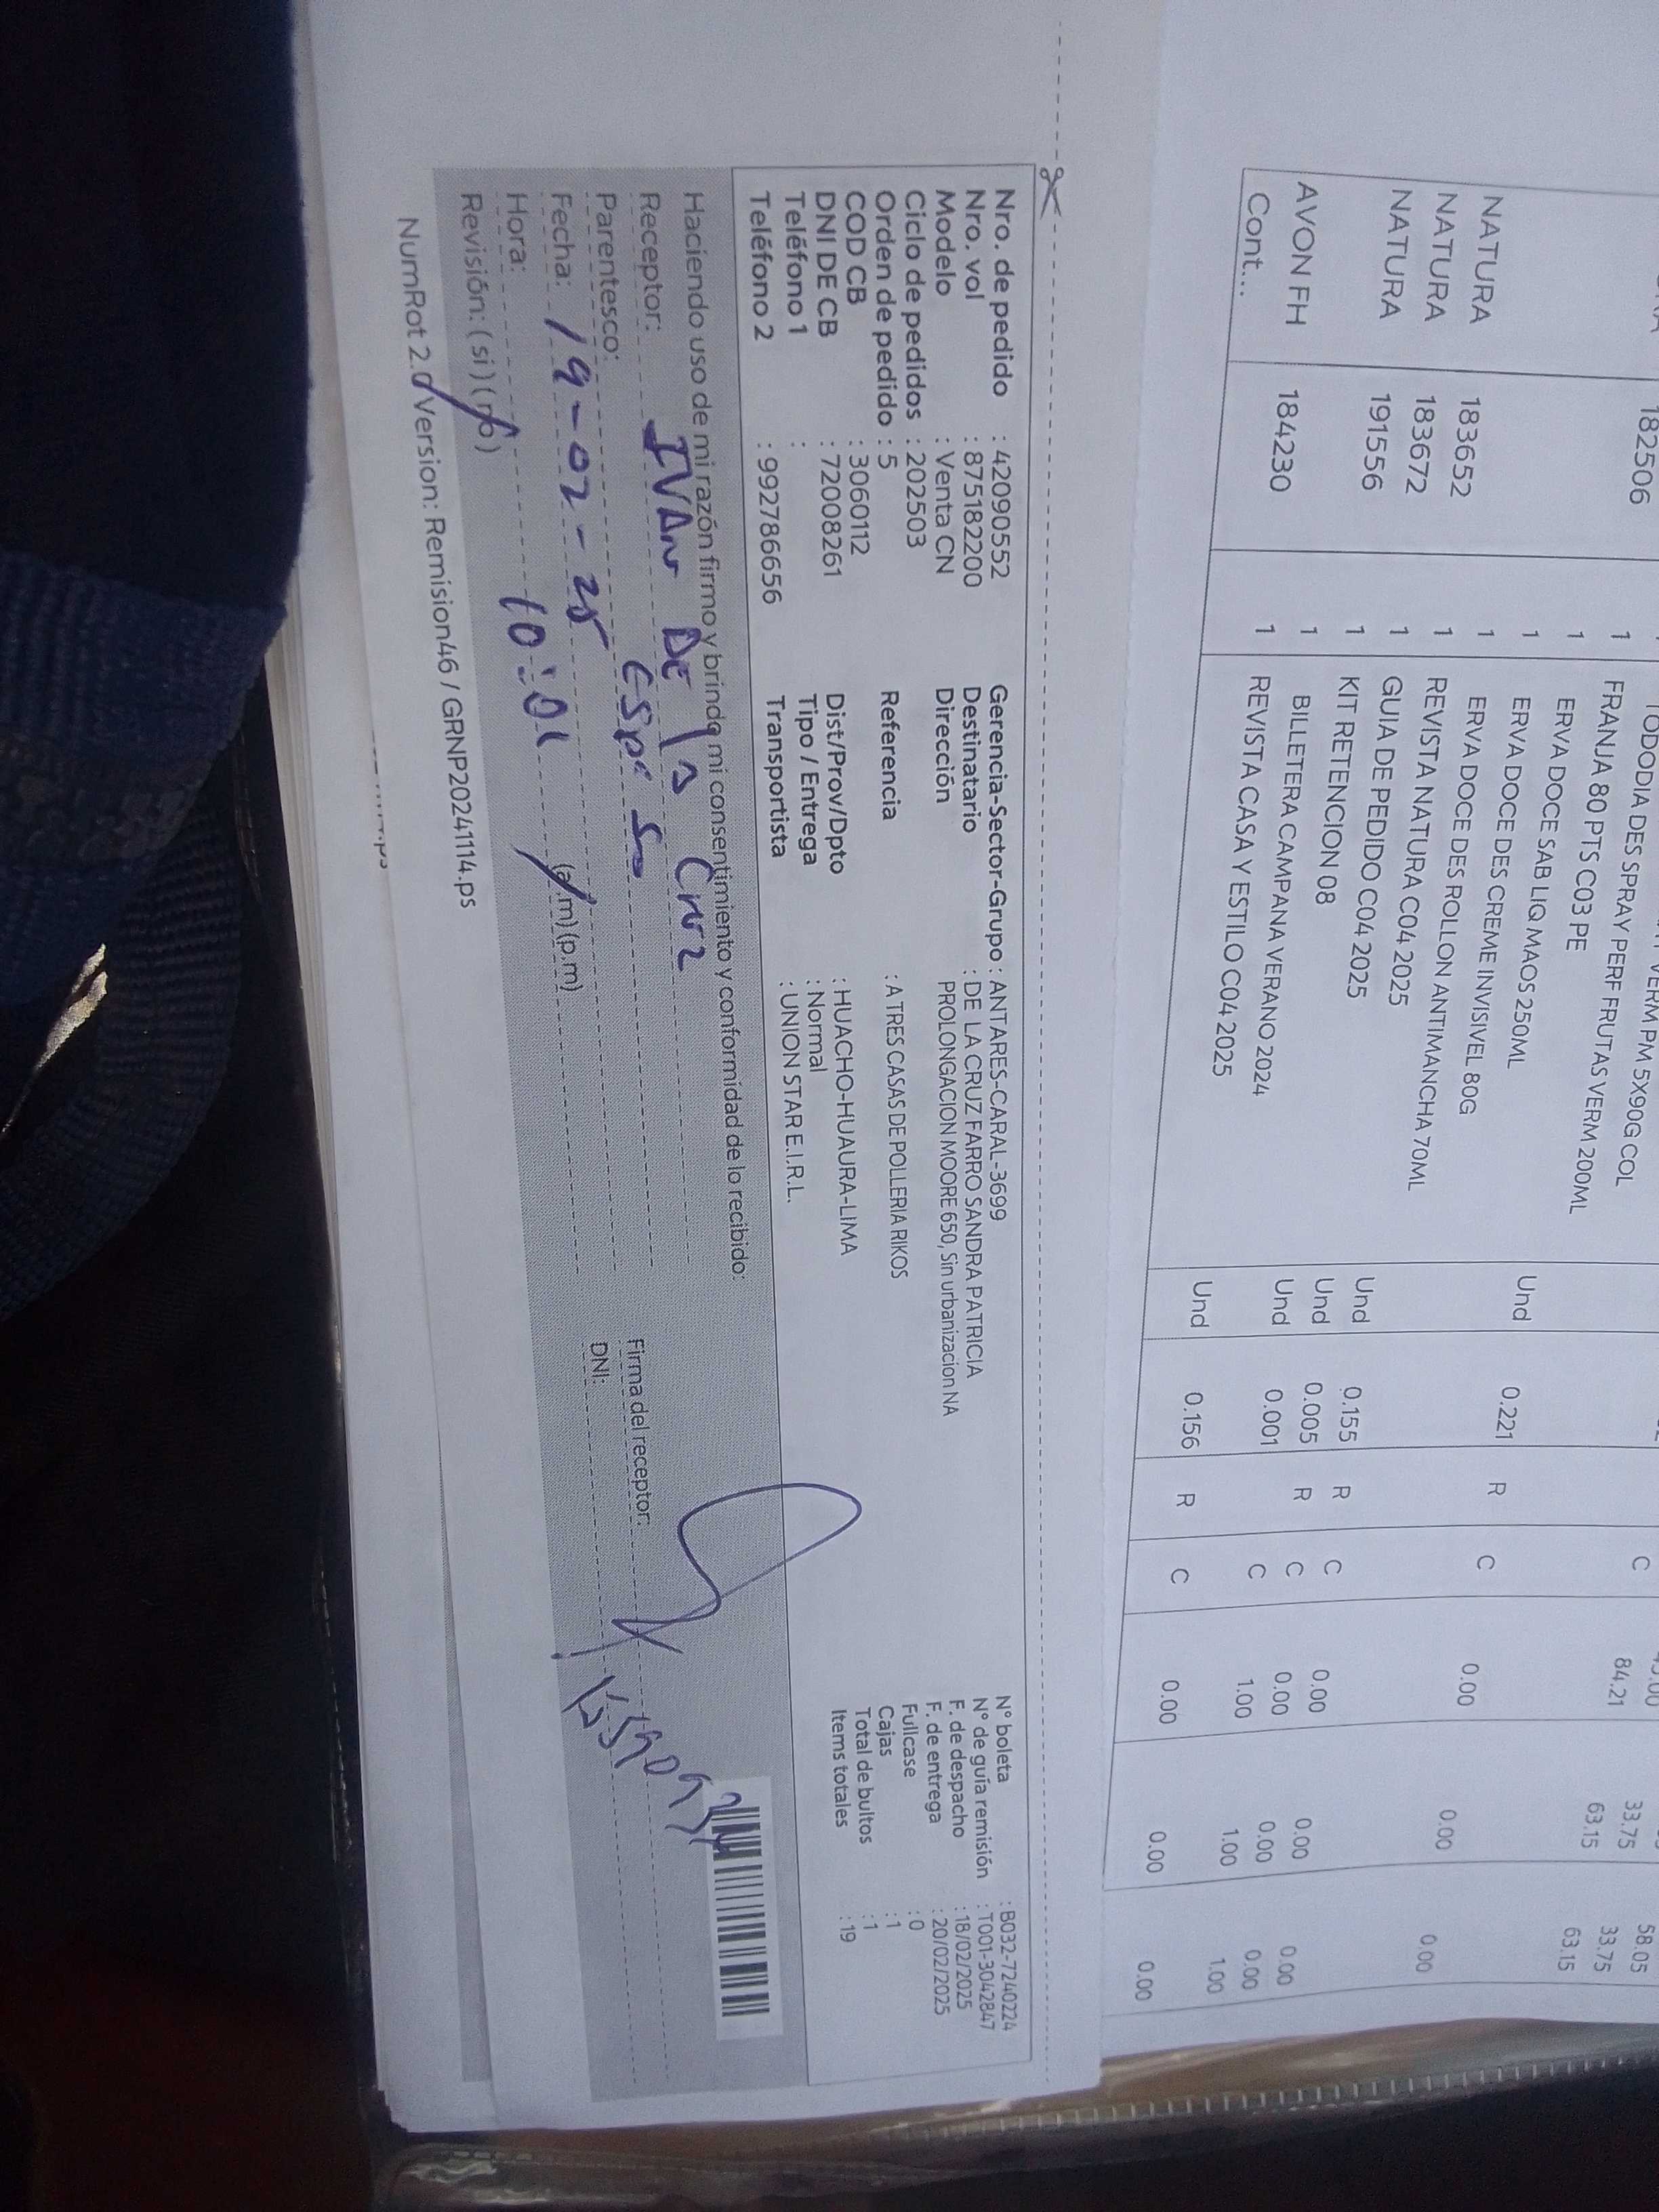 182506
1
TODODIA DES SPRAY PERF FRUTAS VERM 200ML
C
84.21
33.75
58.05
1
FRANJA 80 PTS C03 PE
63.15
33.75
1
ERVA DOCE SAB LIQ MAOS 250ML
63.15
1
ERVA DOCE DES CREME INVISIVEL 80G
Und
0.221
R
C
0.00
0.00
0.00
NATURA
183652
1
ERVA DOCE DES ROLLON ANTIMANCHA 70ML
NATURA
183672
1
REVISTA NATURA C04 2025
Und
0.155
R
C
0.00
0.00
0.00
NATURA
191556
1
GUIA DE PEDIDO C04 2025
Und
0.005
R
C
0.00
0.00
0.00
1
KIT RETENCION 08
Und
0.001
C
1.00
1.00
1.00
AVON FH
184230
1
BILLETERA CAMPANA VERANO 2024
Cont...
1
REVISTA CASA Y ESTILO C04 2025
Und
0.156
R
C
0.00
0.00
0.00
Nro. de pedido : 42090552
Nro. vol : 875182200
Modelo : Venta CN
Ciclo de pedidos : 202503
Orden de pedido : 5
COD CB : 3060112
DNI DE CB : 72008261
Teléfono 1 :
Teléfono 2 : 992786656
Gerencia-Sector-Grupo : ANTARES-CARAL-3699
Destinatario : DE LA CRUZ FARRO SANDRA PATRICIA
Dirección PROLONGACION MOORE 650, Sin urbanizacion NA
Referencia : A TRES CASAS DE POLLERIA RIKOS
Dist/Prov/Dpto : HUACHO-HUAURA-LIMA
Tipo / Entrega : Normal
Transportista : UNION STAR E.I.R.L.
N° boleta : B032-7240224
N° de guía remisión : T001-3042847
F. de despacho : 18/02/2025
F. de entrega : 20/02/2025
Fullcase : 0
Cajas : 1
Total de bultos : 1
Items totales : 19
Haciendo uso de mi razón firmo y brindo mi consentimiento y conformidad de lo recibido:
Receptor: IVAN De la Cruz
Parentesco: Esposo
Fecha: 19-02-25
Hora: 10:01 (a.m) (p.m)
Revisión: ( si ) ( no )
Firma del receptor:
DNI:
NumRot 2.0 Version: Remision46 / GRNP20241114.ps